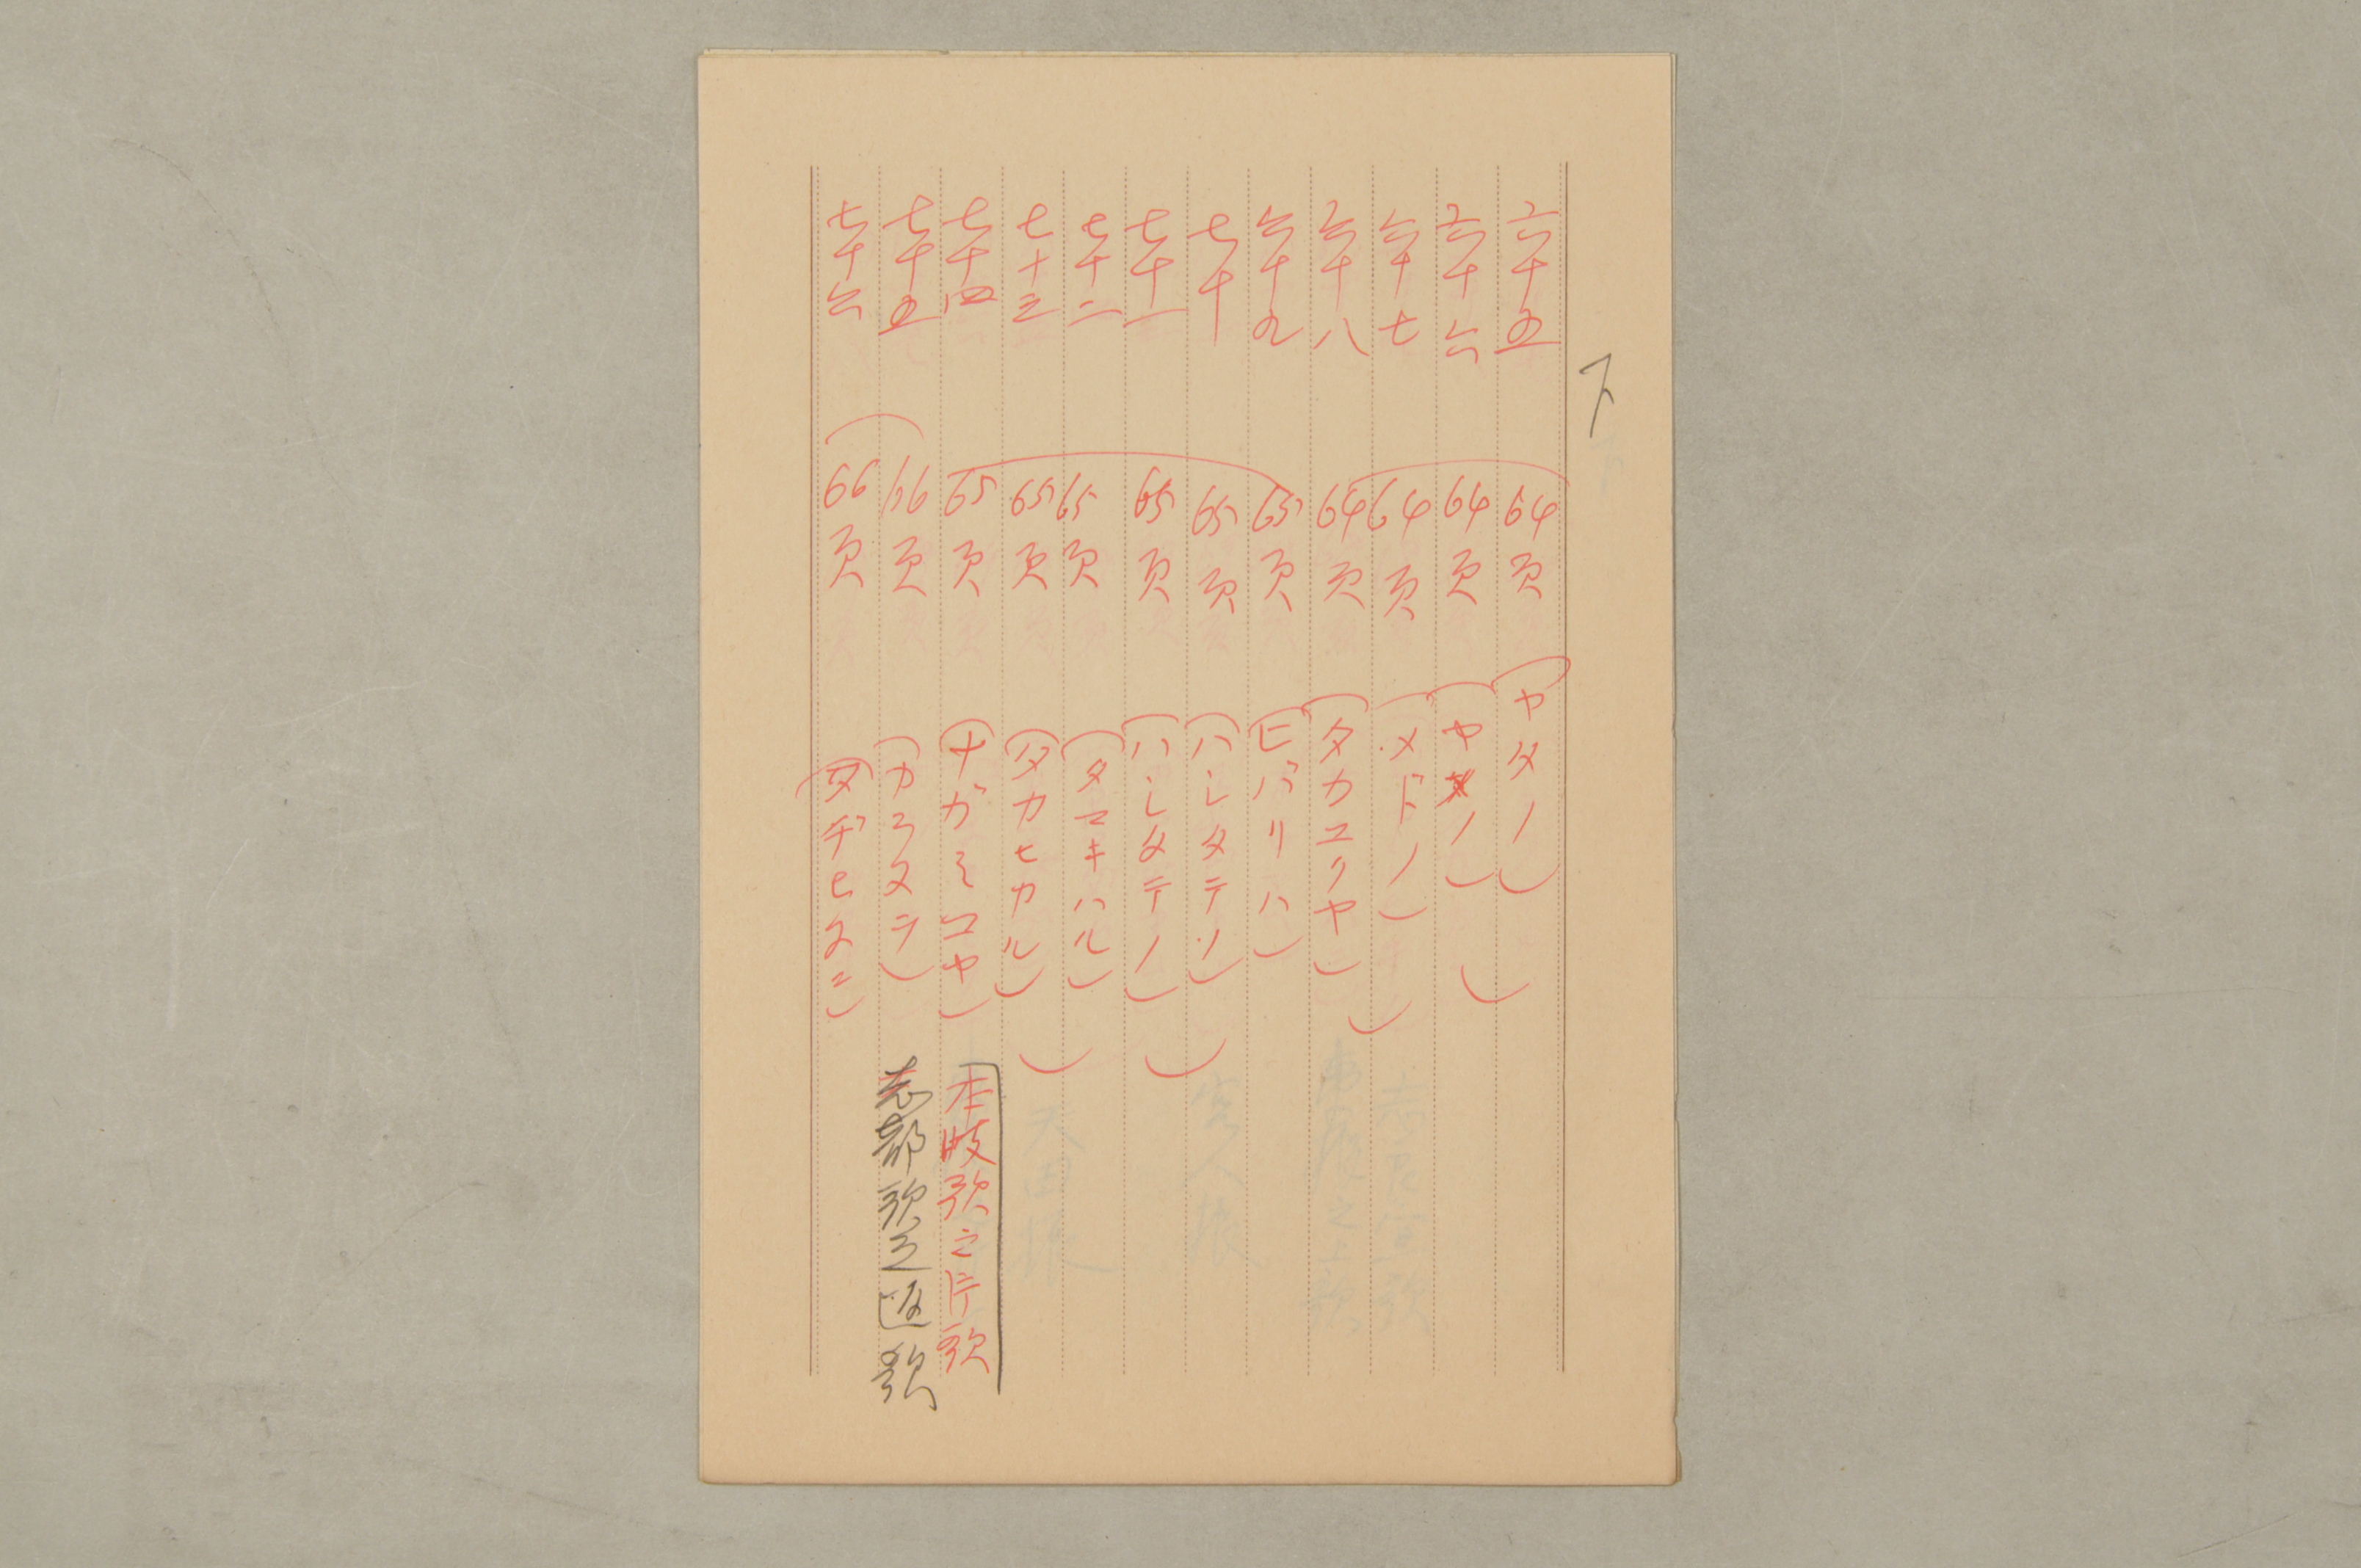 下
六十五 64頁 (ヤタノ)
六十六 64頁 (ヤタノ)
六十七 64頁 (メドノ)
六十八 64頁 (タカユクヤ)
六十九 65頁 (ヒバリハ)
七十 65頁 (ハシタテノ)
七十一 65頁 (ハシタテノ)
七十二 65頁 (タマキハル)
七十三 65頁 (タカヒカル)
七十四 65頁 (ナガミコヤ) 本岐歌之片歌
七十五 66頁 (カラヌヲ) 志都歌之返歌
七十六 66頁 (タヂヒヌニ)